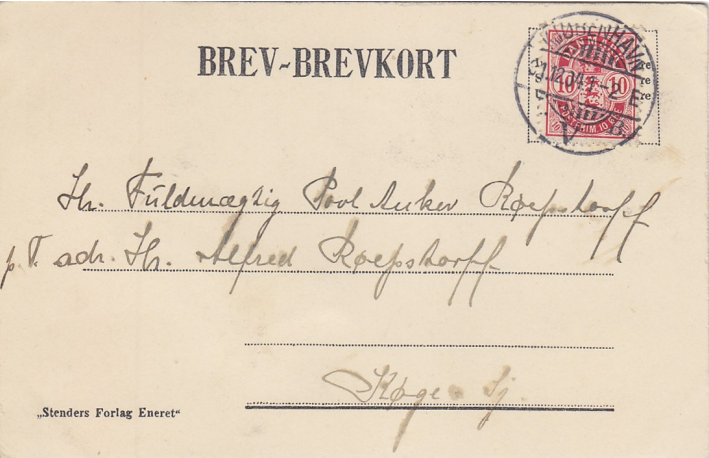 BREV-BREVKORT
KJØBENHAVN
10 10
V B
Hr. Fuldmægtig Povl Anker Roepstorff
p. T. adr. Hr. Alfred Roepstorff
Køge Sj.
„Stenders Forlag Eneret“